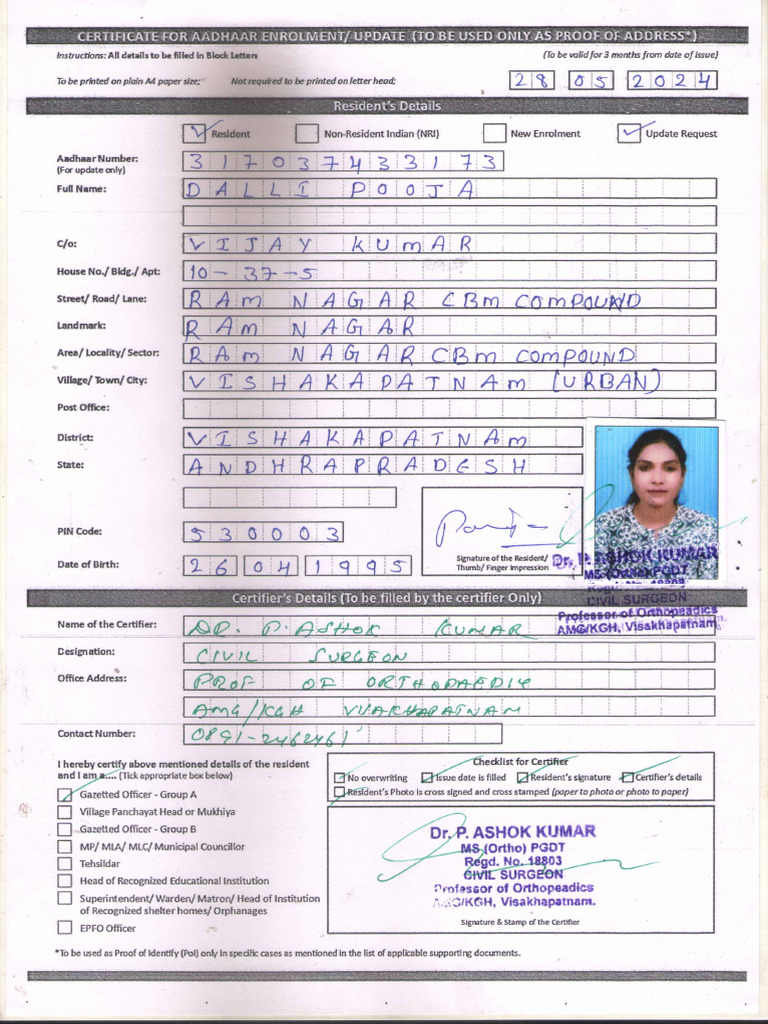 CERTIFICATE FOR AADHAAR ENROLMENT/ UPDATE (TO BE USED ONLY AS PROOF OF ADDRESS*)
Instructions: All details to be filled in Block Letters (To be valid for 3 months from date of issue)
To be printed on plain A4 paper size; Not required to be printed on letter head; 28 05 2024
Resident's Details
Resident Non-Resident Indian (NRI) New Enrolment Update Request
Aadhaar Number: 317037433173
(For update only)
Full Name: DALLI POOJA
C/o: VIJAY KUMAR
House No./ Bldg./ Apt: 10-37-5
Street/ Road/ Lane: RAM NAGAR CBM COMPOUND
Landmark: RAM NAGAR
Area/ Locality/ Sector: RAM NAGAR CBM COMPOUND
Village/ Town/ City: VISHAKAPATNAM (URBAN)
Post Office:
District: VISHAKAPATNAM
State: ANDHRAPRADESH
PIN Code: 530003
Signature of the Resident/
Thumb/ Finger Impression
Date of Birth: 26 04 1995
Dr. P. ASHOK KUMAR
MS (Ortho) PGDT
Regd. No. 18803
CIVIL SURGEON
Professor of Orthopeadics
AMG/KGH, Visakhapatnam.
Certifier's Details (To be filled by the certifier Only)
Name of the Certifier: DR. P. ASHOK KUMAR
Designation: CIVIL SURGEON
Office Address: PROF OF ORTHOPAEDIC
AMG/KGH
Contact Number: 0891-2462461
I hereby certify above mentioned details of the resident
and I am a.... (Tick appropriate box below)
Gazetted Officer - Group A
Village Panchayat Head or Mukhiya
Gazetted Officer - Group B
MP/ MLA/ MLC/ Municipal Councillor
Tehsildar
Head of Recognized Educational Institution
Superintendent/ Warden/ Matron/ Head of Institution
of Recognized shelter homes/ Orphanages
EPFO Officer
Checklist for Certifier
No overwriting Issue date is filled Resident's signature Certifier's details
Resident's Photo is cross signed and cross stamped (paper to photo or photo to paper)
Dr. P. ASHOK KUMAR
MS (Ortho) PGDT
Regd. No. 18803
CIVIL SURGEON
Professor of Orthopeadics
AMG/KGH, Visakhapatnam.
Signature & Stamp of the Certifier
*To be used as Proof of Identify (PoI) only in specific cases as mentioned in the list of applicable supporting documents.